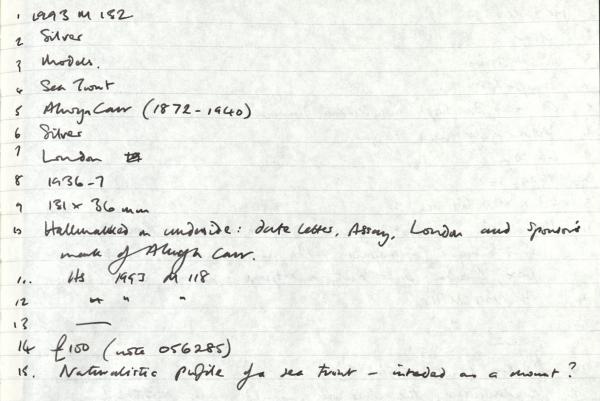 1 1993 M 182
2 Silver
3 Models.
4 Sea Trout
5 Alwyn Carr (1872-1940)
6 Silver
7 London
8 1936-7
9 131 x 36 mm
10 Hallmarked on underside: date letter, Assay, London and sponsor's
mark of Alwyn Carr.
11. As 1993 M 118
12 " " "
13 —
14 £100 (note 056285)
15. Naturalistic profile of a sea trout - intended as a mount?